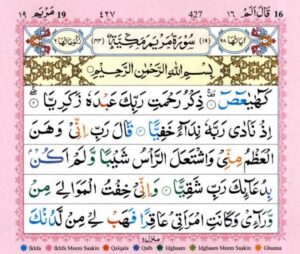 ١٩ مَرْيَم 19 ٤٢٧ 427 ١٦ قَالَ اَلَمْ 16
رُكُوْعَاتُهَا ٦ (٤٤) سُوْرَةُ مَرْيَمَ مَكِّيَّةٌ (١٩) اٰيَاتُهَا ٩٨
بِسْمِ اللهِ الرَّحْمٰنِ الرَّحِيْمِ
كٓهٰيٰعٓصٓ ۞ ذِكْرُ رَحْمَتِ رَبِّكَ عَبْدَهٗ زَكَرِيَّا
اِذْ نَادٰى رَبَّهٗ نِدَآءً خَفِيًّا ۞ قَالَ رَبِّ اِنِّيْ وَهَنَ
الْعَظْمُ مِنِّيْ وَاشْتَعَلَ الرَّاْسُ شَيْبًا وَّلَمْ اَكُنْۢ
بِدُعَآئِكَ رَبِّ شَقِيًّا ۞ وَاِنِّيْ خِفْتُ الْمَوَالِيَ مِنْ
وَّرَآءِيْ وَكَانَتِ امْرَاَتِيْ عَاقِرًا فَهَبْ لِيْ مِنْ لَّدُنْكَ
Ikhfa Ikhfa Meem Saakin Qalqala Qalb Idghaam Idghaam Meem Saakin Ghunna